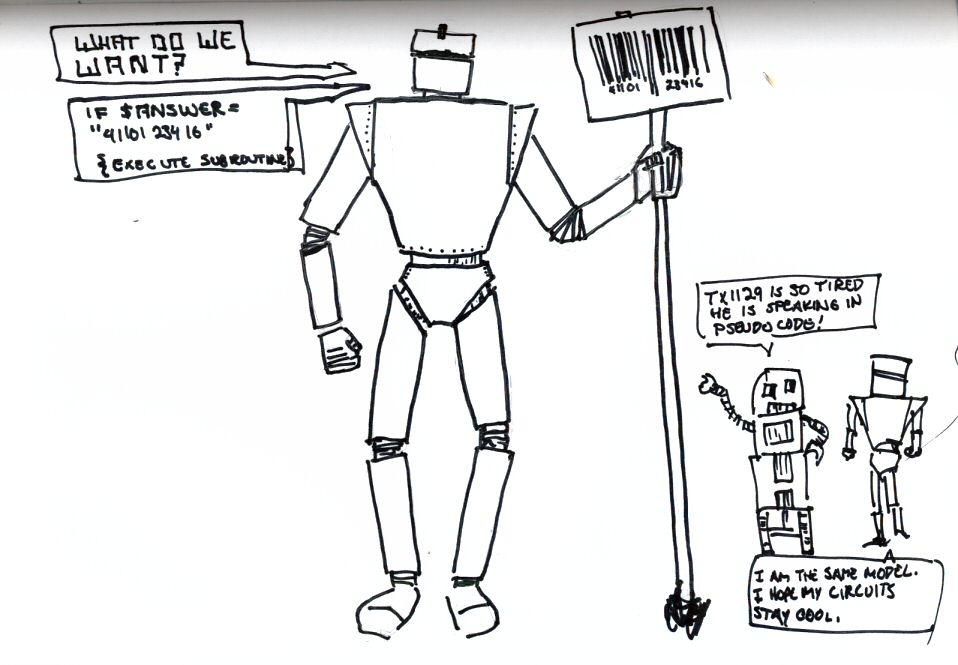 WHAT DO WE
WANT?
IF $ANSWER=
"41101 23416"
{EXECUTE SUBROUTINE}
41101 23416
TX1129 IS SO TIRED
HE IS SPEAKING IN
PSEUDO CODE!
I AM THE SAME MODEL.
I HOPE MY CIRCUITS
STAY COOL.